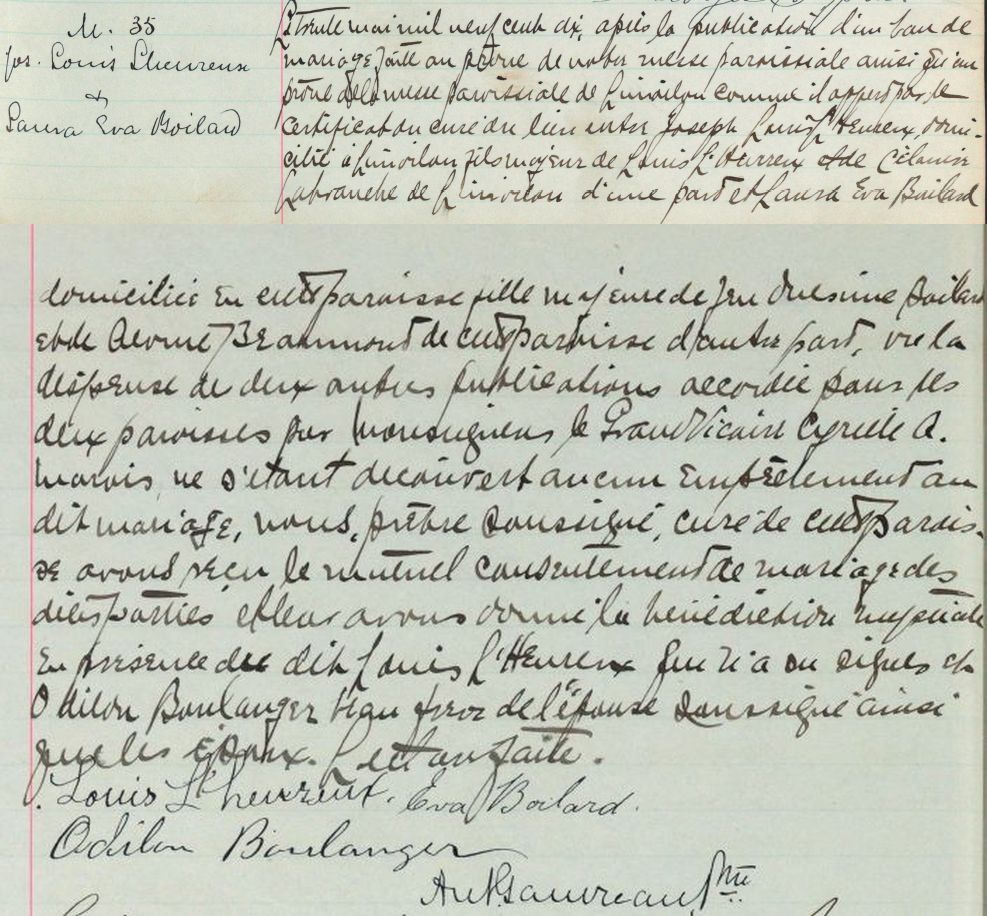 M. 35
Jos. Louis Lheureux
&
Laura Eva Boilard
Le trente mai mil neuf cent dix, après la publication d'un ban de
mariage faite au prône de notre messe paroissiale ainsi qu'au
prône de la messe paroissiale de comme il appert par le
certificat du curé du lieu entre Joseph Louis L'Heureux, domi-
cilié à fils majeur de Louis L'Heureux et de Célanire
Labranche de d'une part et Laura Eva Boilard
domiciliée en cette paroisse fille majeure de feu Onésime Boilard
et de Beaumont de cette paroisse d'autre part, vu la
dispense de deux autres publications accordée pour les
deux paroisses par Monseigneur le Grand Vicaire Cyrille A.
Marois, ne s'étant découvert aucun empêchement au
dit mariage, nous, prêtre soussigné, curé de cette parois-
se avons reçu le mutuel consentement de mariage des
dites parties et leur avons donné la bénédiction nuptiale
en présence du dit Louis L'Heureux qui n'a su signer et
Odilon Boulanger beau frère de l'épouse soussigné ainsi
que les époux. Lecture faite.
Louis L'heureux. Eva Boilard.
Odilon Boulanger
Gauvreau, Ptre